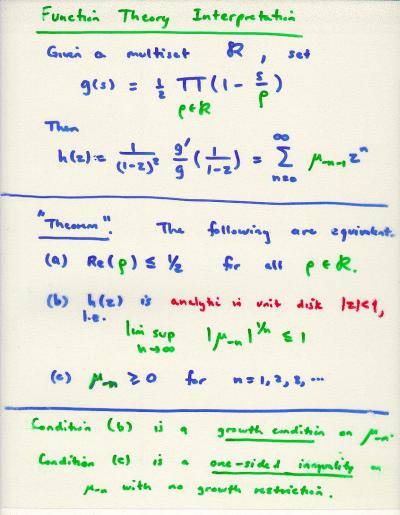 Function Theory Interpretation
Given a multiset R, set
g(s) = 1/2 ∏ (1 - s/ρ)
ρ∈R
Then
h(z):= 1/(1-z)² g'/g (1/(1-z)) = ∑_{n=0}^{∞} μ_{-n-1} z^n
"Theorem". The following are equivalent.
(a) Re(ρ) ≤ 1/2 for all ρ∈R.
(b) h(z) is analytic in unit disk |z|<1,
i.e.
lim sup_{n→∞} |μ_{-n}|^{1/n} ≤ 1
(c) μ_{-n} ≥ 0 for n=1,2,3,...
Condition (b) is a growth condition on μ_{-n}.
Condition (c) is a one-sided inequality on
μ_{-n} with no growth restriction.